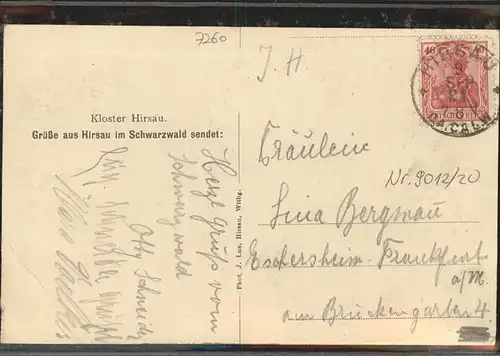 7260
J. H
40
HIRSAU
OA. CALW.
Kloster Hirsau.
Grüße aus Hirsau im Schwarzwald sendet:
Herzl. Gruß vom
Schwarzwald
Otto Schneider
Phot. J. Lux, Hirsau, Wttbg.
Fräulein
Nr. 9012/20
Lina Bergmau
Eschersheim-Frankfurt
a/M.
am Brückengarten 4